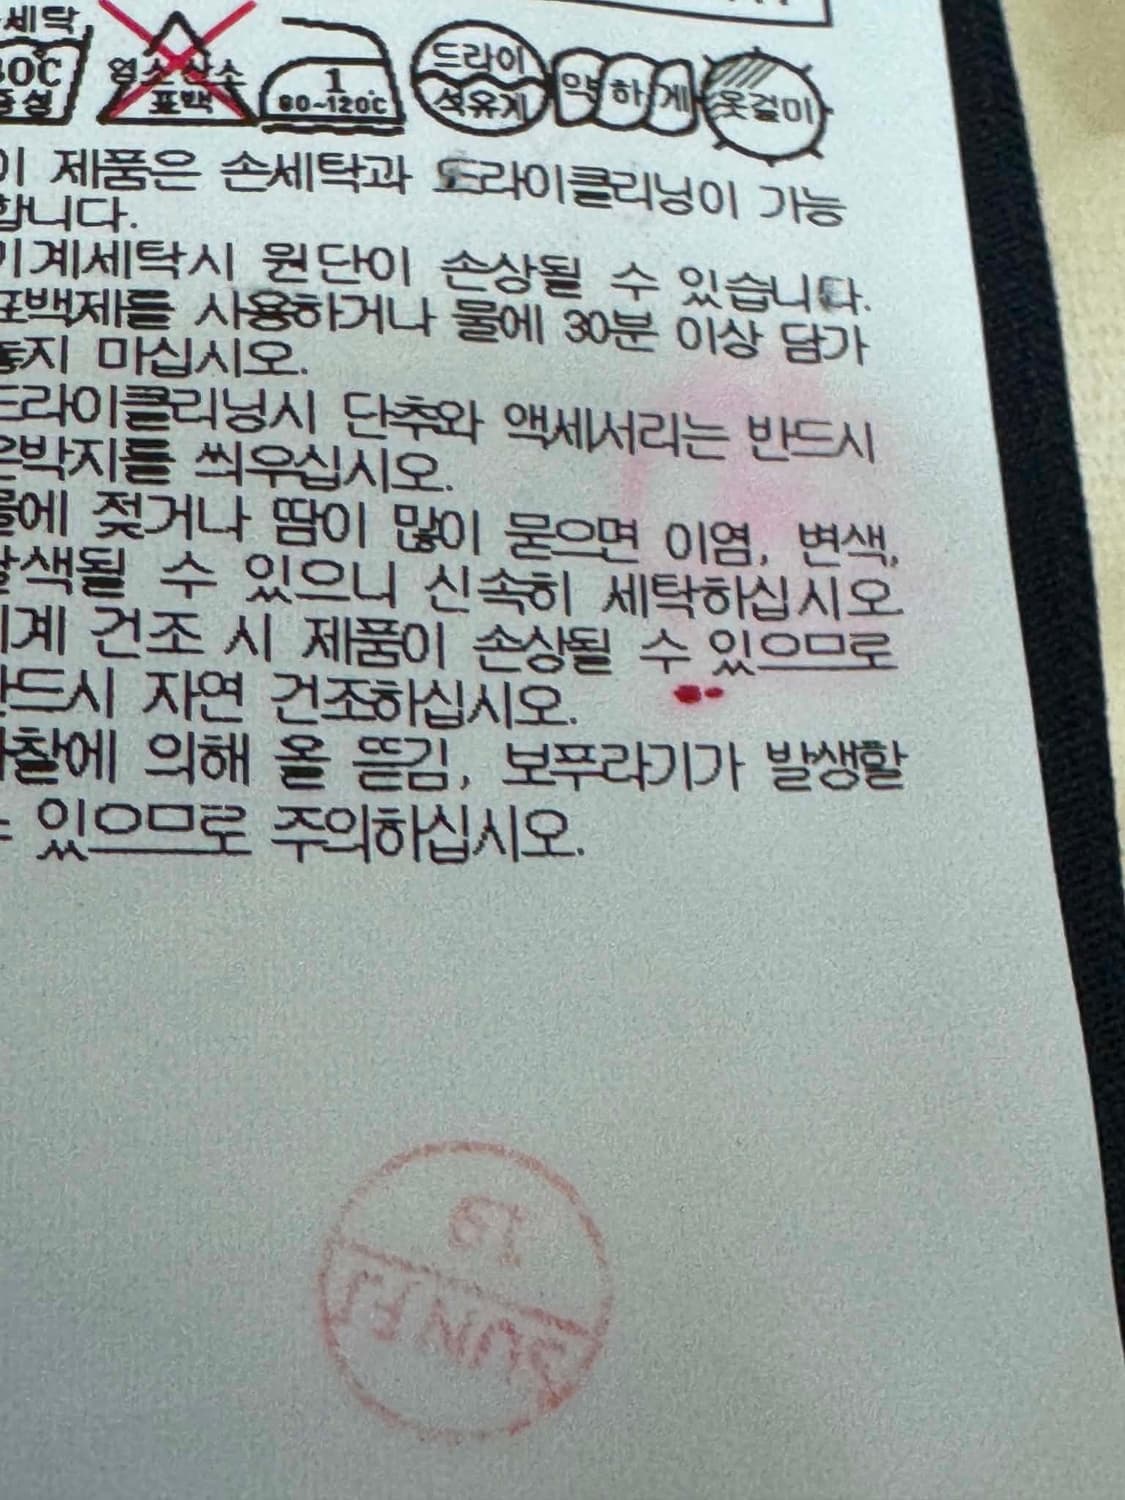 세탁
30℃
중성
염소 산소
표백
1
80~120℃
드라이
석유계
약하게
옷걸이
이 제품은 손세탁과 드라이클리닝이 가능
합니다.
기계세탁시 원단이 손상될 수 있습니다.
표백제를 사용하거나 물에 30분 이상 담가
놓지 마십시오.
드라이클리닝시 단추와 액세서리는 반드시
은박지를 씌우십시오.
물에 젖거나 땀이 많이 묻으면 이염, 변색,
탈색될 수 있으니 신속히 세탁하십시오
기계 건조 시 제품이 손상될 수 있으므로
반드시 자연 건조하십시오.
마찰에 의해 올 뜯김, 보푸라기가 발생할
수 있으므로 주의하십시오.